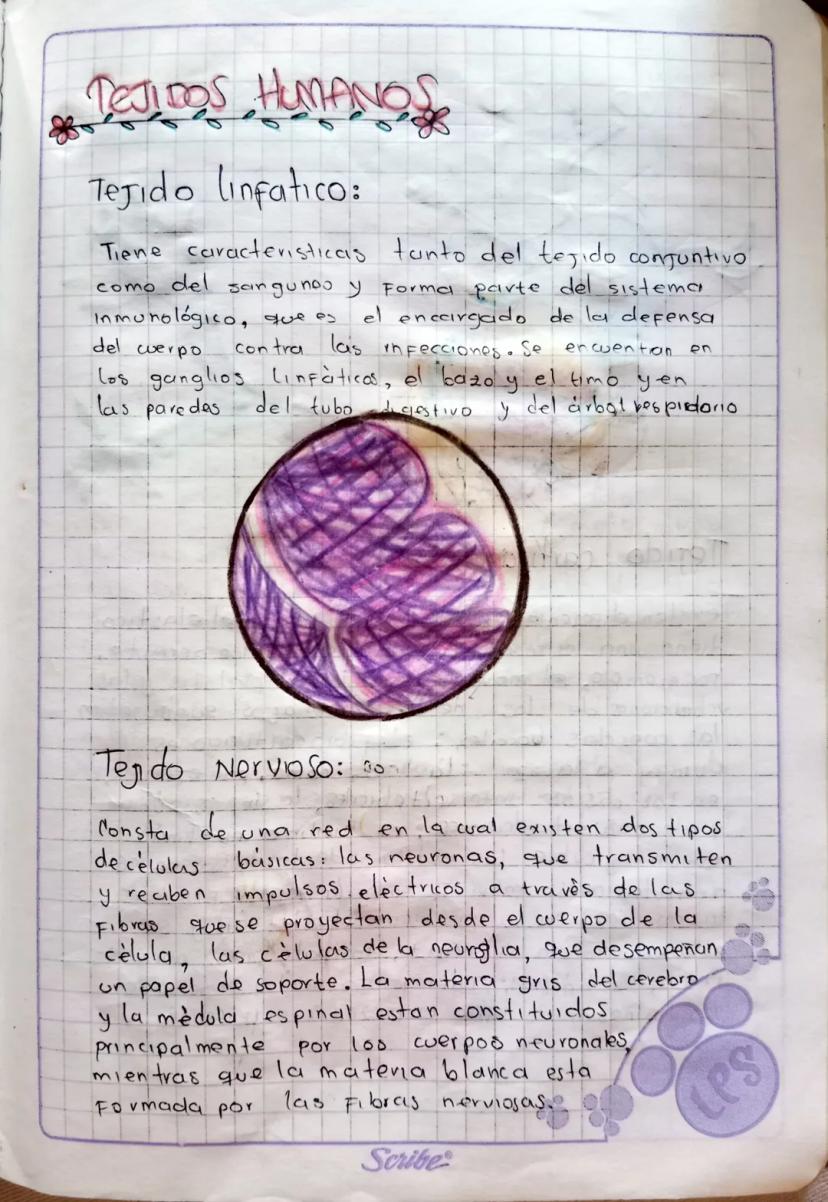 TEJIDOS HUMANOS
Tejido linfatico:
Tiene caracteristicas tanto del tejido conjuntivo
como del sanguneo y forma parte del sistema
inmunológico, que es el encargado de la defensa
del cuerpo contra las infecciones. Se encuentan en
los ganglios linfàticos, el bazo y el timo y en
las paredes del tubo digestivo y del árbol respiratorio
Tejido Nervioso:
Consta de una red en la cual existen dos tipos
de cèlulas básicas: las neuronas, que transmiten
y reciben impulsos elèctricos a travès de las
fibras que se proyectan desde el cuerpo de la
cèlula, las cèlulas de la neuroglia, que desempeñan
un papel de soporte. La materia gris del cerebro
y la mèdula espinal estan constituidos
principalmente por los cuerpos neuronales,
mientras que la materia blanca esta
formada por las fibras nerviosas.
LPS
Scribe